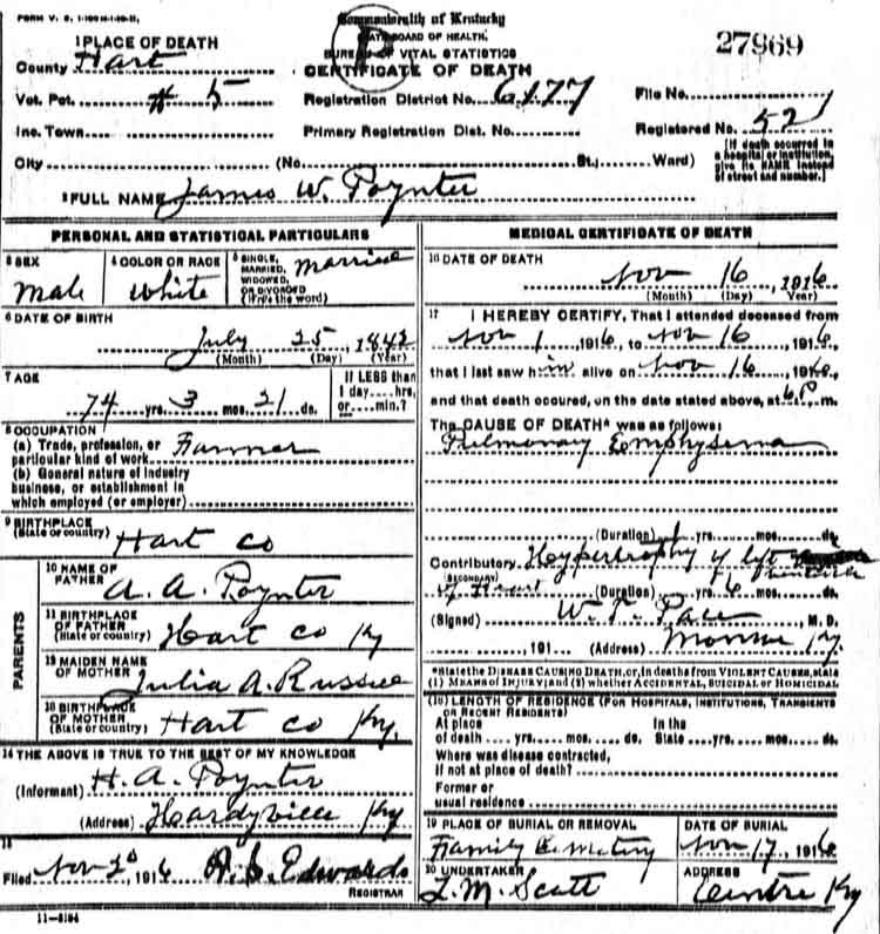 FORM V. S. 
Commonwealth of Kentucky
STATE BOARD OF HEALTH
BUREAU OF VITAL STATISTICS
CERTIFICATE OF DEATH
27969
1 PLACE OF DEATH
County Hart
Vot. Pct. # 5
Registration District No. 6177
File No.
Inc. Town
Primary Registration Dist. No.
Registered No. 52
City (No. St.; Ward)
[If death occurred in a hospital or institution, give its NAME instead of street and number.]
2 FULL NAME James W. Poynter
PERSONAL AND STATISTICAL PARTICULARS
3 SEX
Male
4 COLOR OR RACE
White
5 SINGLE, MARRIED, WIDOWED, OR DIVORCED (Write the word)
Married
6 DATE OF BIRTH
July 25, 1842
(Month) (Day) (Year)
7 AGE
74 yrs. 3 mos. 21 ds.
If LESS than 1 day....hrs, or....min.?
8 OCCUPATION
(a) Trade, profession, or particular kind of work Farmer
(b) General nature of industry
business, or establishment in
which employed (or employer)
9 BIRTHPLACE
(State or country) Hart co
PARENTS
10 NAME OF FATHER
A. A. Poynter
11 BIRTHPLACE OF FATHER
(State or country) Hart co Ky
12 MAIDEN NAME OF MOTHER
Julia A. Russell
13 BIRTHPLACE OF MOTHER
(State or country) Hart co Ky.
14 THE ABOVE IS TRUE TO THE BEST OF MY KNOWLEDGE
(Informant) H. A. Poynter
(Address) Hardyville Ky
15
Filed Nov 20, 1916 Edwards
REGISTRAR
11-5184
MEDICAL CERTIFICATE OF DEATH
16 DATE OF DEATH
Nov 16, 1916
(Month) (Day) (Year)
17 I HEREBY CERTIFY, That I attended deceased from
Nov 1, 1916, to Nov 16, 1916,
that I last saw him alive on Nov 16, 1916,
and that death occured, on the date stated above, at 6 P. m.
The CAUSE OF DEATH* was as follows:
Pulmonary Emphysema
(Duration) yrs. mos. ds.
Contributory Hypertrophy of left ventricle
(SECONDARY)
of Heart (Duration) yrs. 6 mos. ds.
(Signed) W. T. Pace, M. D.
, 191 (Address) Monroe Ky.
*State the DISEASE CAUSING DEATH, or, in deaths from VIOLENT CAUSES, state
(1) MEANS of INJURY; and (2) whether ACCIDENTAL, SUICIDAL or HOMICIDAL
(18) LENGTH OF RESIDENCE (FOR HOSPITALS, INSTITUTIONS, TRANSIENTS
OR RECENT RESIDENTS)
At place of death .... yrs. .... mos. .... ds. In the State .... yrs. .... mos. .... ds.
Where was disease contracted,
if not at place of death?
Former or
usual residence
19 PLACE OF BURIAL OR REMOVAL
Family Cemetery
DATE OF BURIAL
Nov 17, 1916
20 UNDERTAKER
L. M. Scott
ADDRESS
Centre Ky